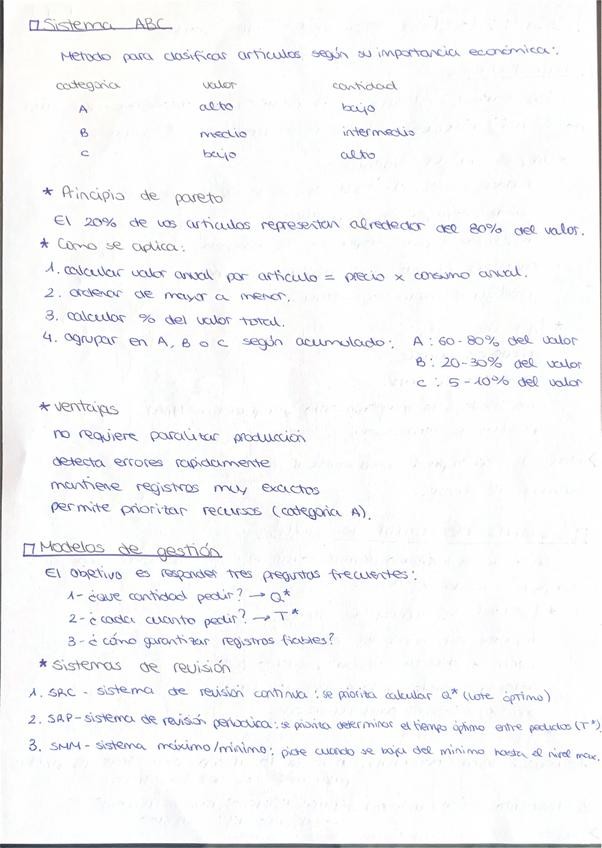 Sistema ABC
Metodo para clasificar articulos según su importancia económica:
categoria valor cantidad
A alto bajo
B medio intermedio
C bajo alto
* Principio de pareto
El 20% de los articulos representan alrededor del 80% del valor.
* Como se aplica:
1. calcular valor anual por articulo = precio x consumo anual.
2. ordenar de mayor a menor.
3. calcular % del valor total.
4. agrupar en A, B o C según acumulado: A: 60-80% del valor
B: 20-30% del valor
C: 5-10% del valor
* ventajas
no requiere paralizar producción
detecta errores rapidamente
mantiene registros muy exactos
permite priorizar recursos (categoria A).
Modelos de gestión
El objetivo es responder tres preguntas frecuentes:
1- ¿que cantidad pedir? → Q*
2- ¿cada cuanto pedir? → T*
3- ¿cómo garantizar registros fiables?
* Sistemas de revisión
1. SRC - sistema de revisión continua: se prioriza calcular Q* (lote óptimo)
2. SRP - sistema de revisión periodica: se prioriza determinar el tiempo óptimo entre productos (T*)
3. SMM - sistema máximo/mínimo: pide cuando se baja del minimo hasta el nivel max.